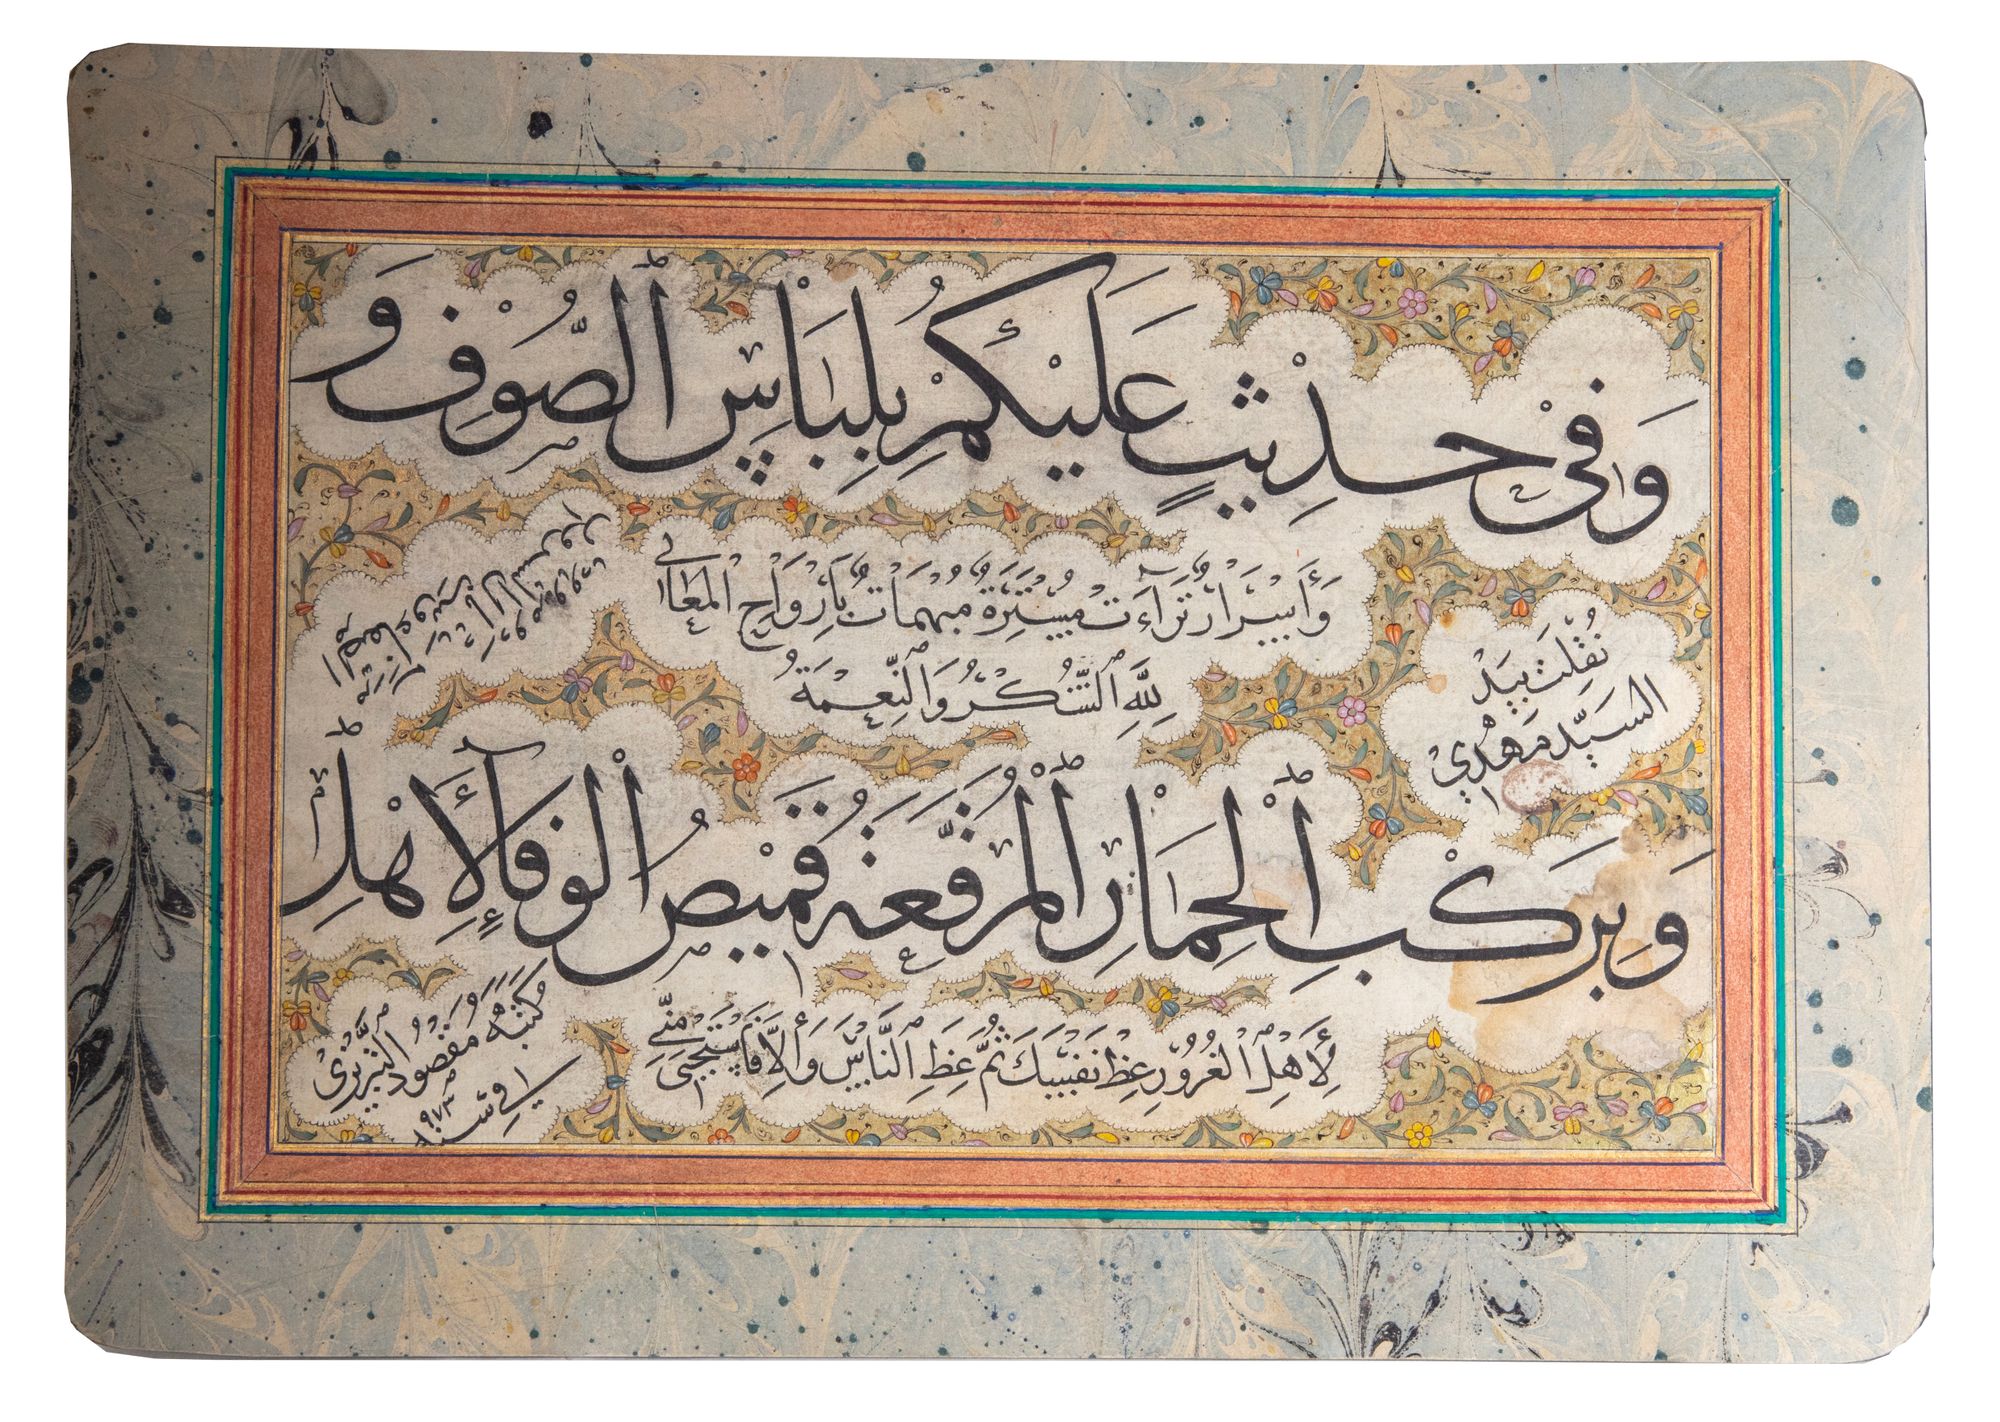 وَفِيْ حَدِيْثٍ عَلَيْكُمْ بِلِبَاسِ الصُّوْفِ وَ
وَأَسْرَارٌ تَرَاءَتْ مُسْتَسِرَّةً مُبْهَمَاتٌ بِأَزْوَاجِ الْمَعَانِي
لِلّٰهِ الشُّكْرُ وَالنِّعْمَةُ
نُقِلَتْ بِيَدِ
السَيِّد مَهْدِيْ
وَيَرْكَبِ الْحِمَارِ الْمُرَقَّعَةُ قَمِيْصُ الْوَفَاءِ لِأَهْلِ
لِأَهْلِ الْغُرُوْرِ عِظْ نَفْسَكَ ثُمَّ عِظِ النَّاسَ وَأَلَّا فَاسْتَحْيِ مِنِّيْ
كَتَبَهُ مَقْصُوْدُ التَّبْرِيْزِيْ
فِي سَنَة ٩٧٣